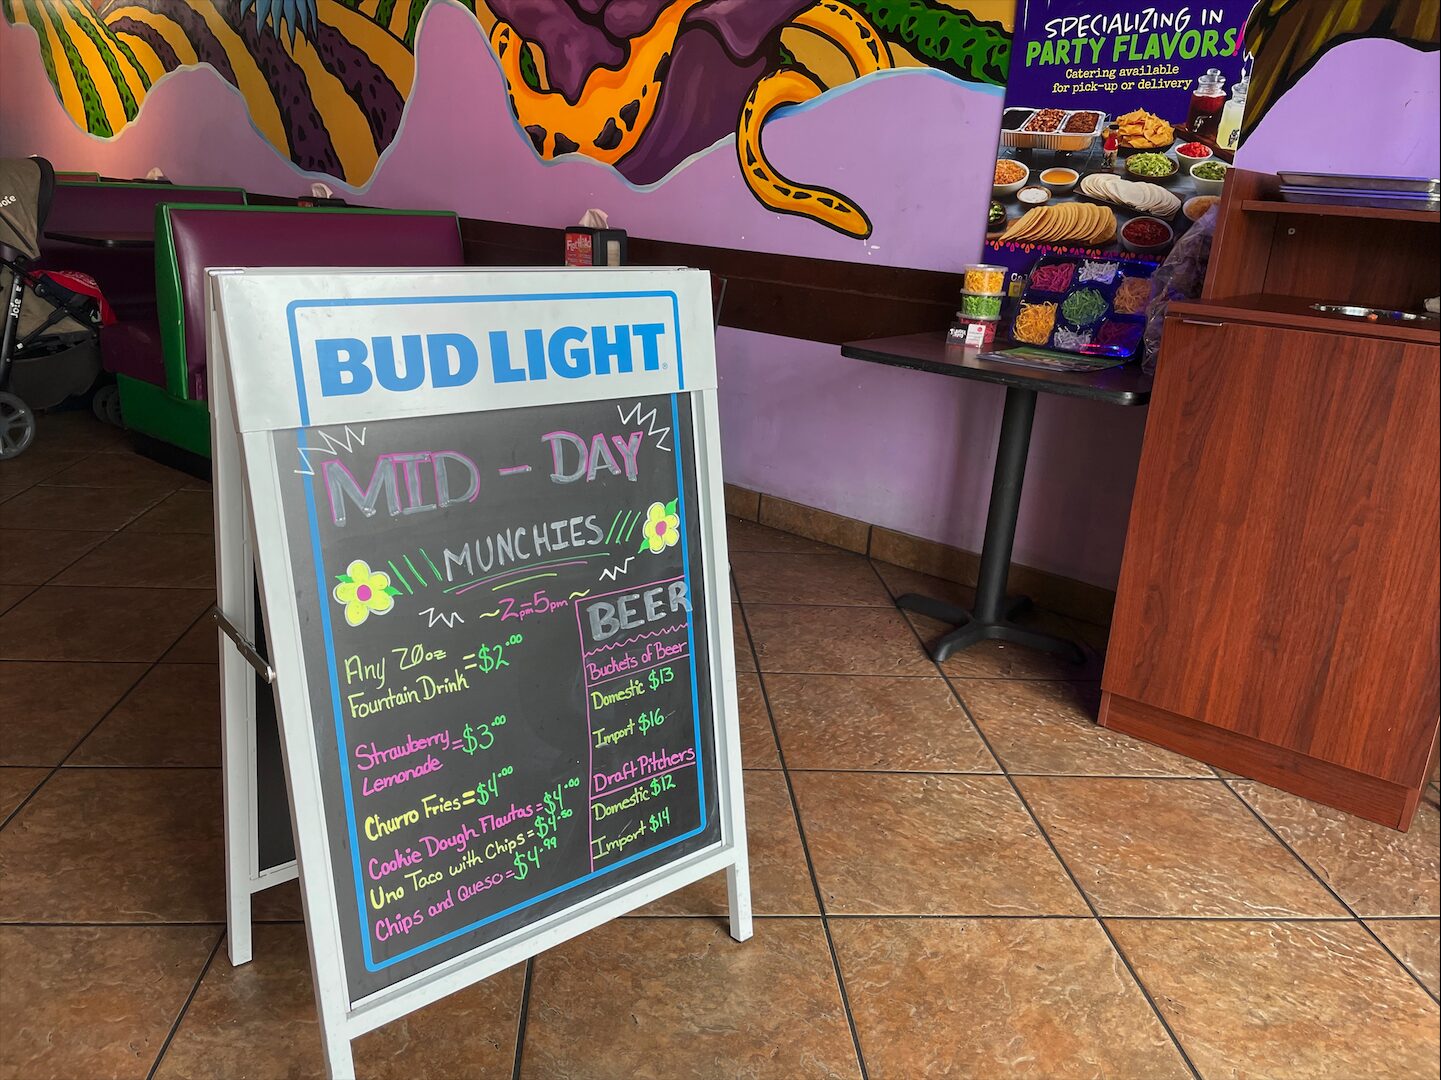 SPECIALIZING IN
PARTY FLAVORS!
Catering available
for pick-up or delivery
Joie
BUD LIGHT
MID - DAY
MUNCHIES
~2pm=5pm~
Any 20oz
Fountain Drink =$2.00
Strawberry
Lemonade =$3.00
Churro Fries=$4.00
Cookie Dough Flautas=$4.00
Uno Taco with Chips=$4.50
Chips and Queso=$4.99
BEER
Buckets of Beer
Domestic $13
Import $16
Draft Pitchers
Domestic $12
Import $14